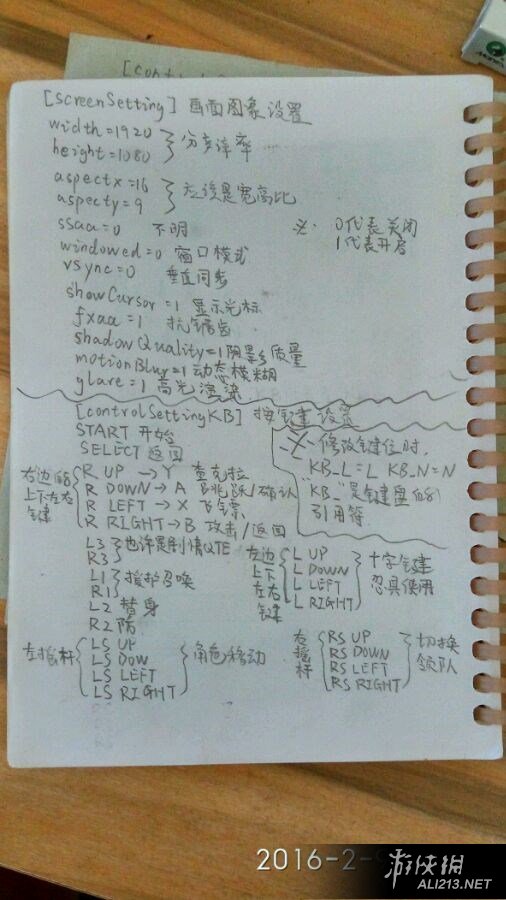 [cont
[screenSetting] 画面图象设置
width=1920
height=1080
分辨率
aspectx=16
aspecty=9
应该是宽高比
ssaa=0 不明
※: 0代表关闭
1代表开启
windowed=0 窗口模式
vsync=0 垂直同步
showCursor=1 显示光标
fxaa=1 抗锯齿
shadowQuality=1阴影质量
motionBlur=1动态模糊
glare=1高光渲染
[controlSettingKB] 按键设置
START 开始
SELECT 返回
※修改键位时,
KB_L=L KB_N=N
"KB_"是键盘的
引用符
右边的
上下左右
键
R UP →Y 查克拉
R DOWN→A 跳跃/确认
R LEFT→X 飞镖
R RIGHT→B 攻击/返回
L3
R3
也许是剧情QTE
L1
R1
援护召唤
L2 替身
R2 防
左边
上下
左右
键
L UP
L DOWN
L LEFT
L RIGHT
十字键
忍具使用
左摇杆
LS UP
LS DOW
LS LEFT
LS RIGHT
角色移动
右
摇
杆
RS UP
RS DOWN
RS LEFT
RS RIGHT
切换
领队
2016-2-
游侠网
ALI213.NET